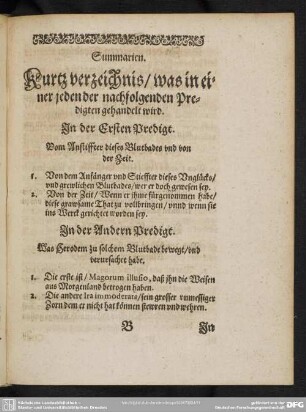 Summarien.
Kurtz verzeichnis/ was in ei
ner jeden der nachfolgenden Pre-
digten gehandelt wird.
In der Ersten Predigt.
Vom Anstiffter dieses Blutbades vnd von
der Zeit.
1. Von dem Anfänger vnd Stieffter dieses Vnglücks/
vnd grewlichen Blutbades/ wer er doch gewesen sey.
2. Von der Zeit/ Wenn er ihme fürgenommen habe/
diese grawsame That zu vollbringen/ vnnd wenn sie
ins Werck gerichtet worden sey.
In der Andern Predigt.
Was Herodem zu solchem Blutbade bewegt/ vnd
verursachet habe.
1. Die erste ist/ Magorum illusio, daß jhn die Weisen
aus Morgenland betrogen haben.
2. Die andere Ira immoderata/ sein grosser vnmessiger
Zorn dem er nicht hat können stewren vnd wehren.
B
In